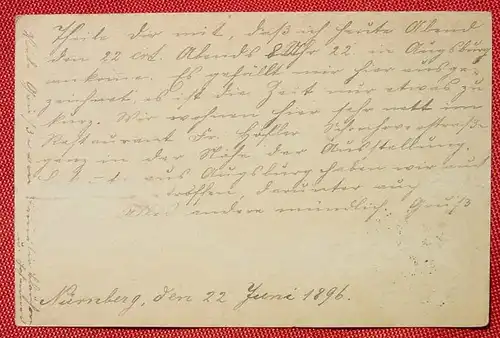 Theile dir mit, daß ich heute Abend
den 22 crt. Abends 8 Uhr 22. in Augsburg
ankomme. Es gefällt mir hier ausge-
zeichnet, es ist die Zeit mir etwas zu
kurz. Wir wohnen hier sehr nett im
Restaurant Fr.
ganz in der Nähe der Ausstellung.
aus Augsburg haben wir auch
troffen, darunter auch
andere mündlich. Gruß
Nürnberg, den 22 Juni 1896.